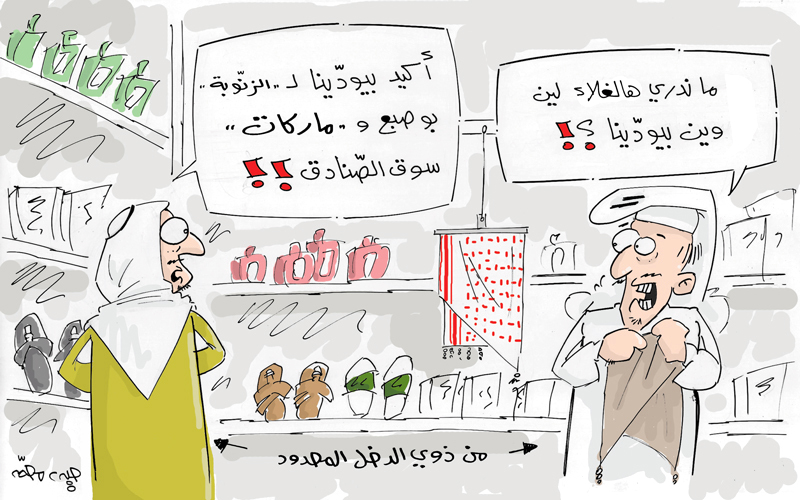 ما ندري هالغلاء لين
وين بيودّينا ؟!
أكيد بيودّينا لـ ,,الزنّوبة,,
بوصبع و ,,ماركات,,
سوق الصّنادق !!
من ذوي الدخل المحدود